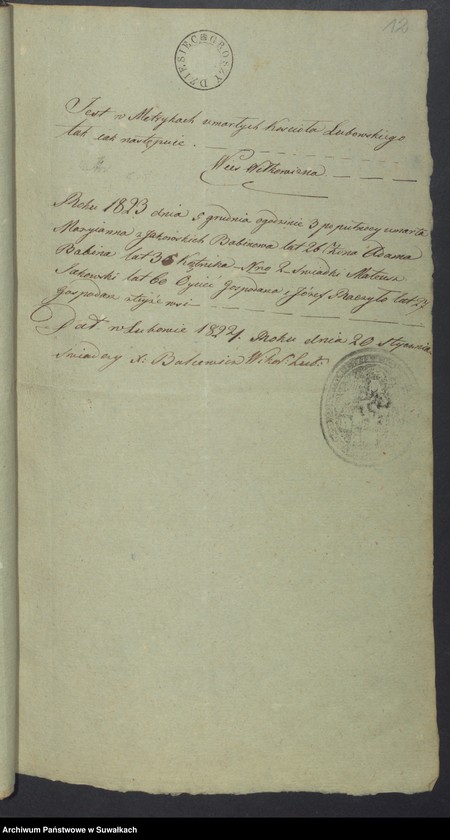 12
DZIESIĘC GROSZY
Jest w Metrykach umarłych Kościoła Lubowskiego
tak jak następuie.
Wieś Wilkomizna
Roku 1823 dnia 5 grudnia o godzinie 3 po południu umarła
Maryianna z Jakowskich Babinowa lat 26 Żona Adama
Babina lat 36 Kątnika - Nro 2 - Świadki Mateusz
Jakowski lat 60 Oyciec Gospodarz i Józef lat
Gospodarz z teyże wsi
Dat. w Lubowie 1824. Roku dnia 20 Stycznia
Świadczy X:
Archiwum Państwowe w Suwałkach